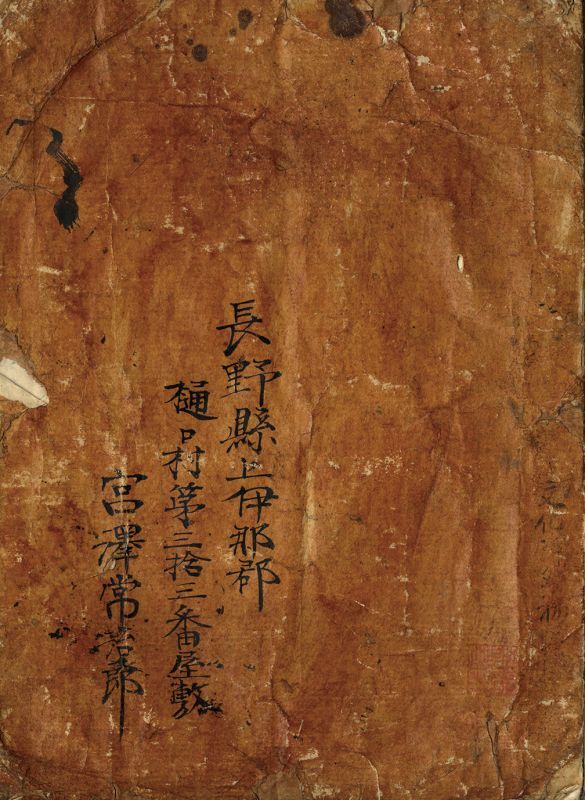 長野縣上伊那郡
樋口村第三拾三番屋敷
宮澤常
郎